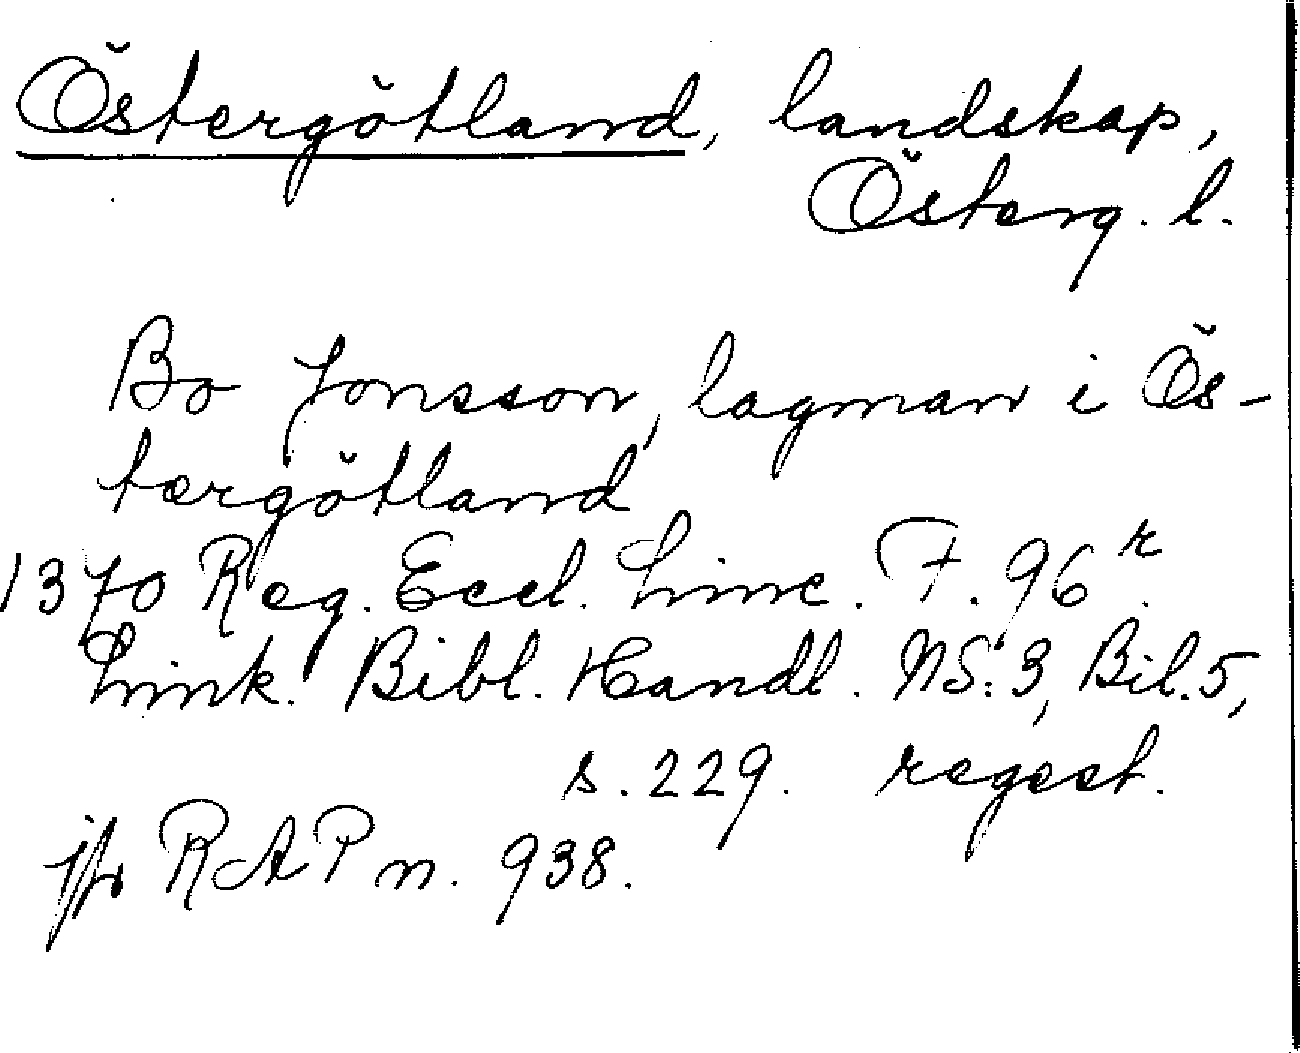 Östergötland, landskap,
Österg. l.
Bo Jonsson, lagman i Ös-
tergötland
1370 Reg. Eccl. Linc. F. 96r.
Link. Bibl. Handl. NS: 3, Bil. 5,
s. 229. regest.
jfr RAP n. 938.